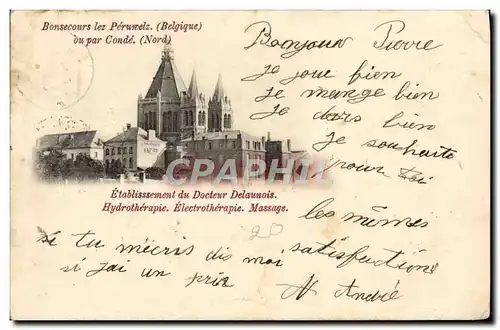 Bonsecours lez Péruwelz. (Belgique)
ou par Condé. (Nord)
Bonjour Pierre
je joue bien
je mange bien
je dors bien
je souhaite
pour toi
CARTPM
Établissement du Docteur Delaunois.
Hydrothérapie. Électrothérapie. Massage.
les mêmes
satisfactions
si tu m'écris dis moi
si j'ai un prix
André